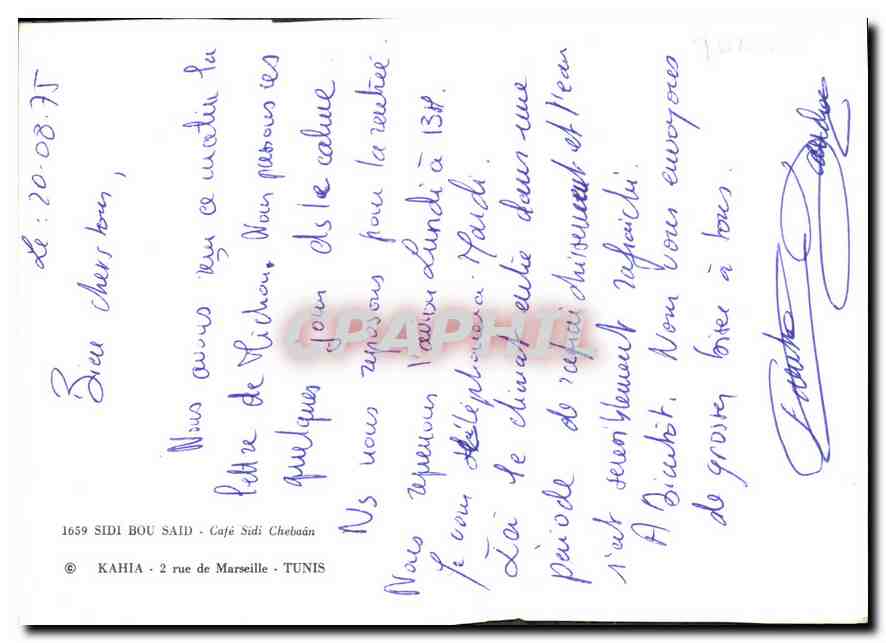 Le : 20-08-75
Bien chers tous,
Nous avons reçu ce matin la
lettre de Michou. Nous passons ces
quelques jours ds le calme.
Ns nous reposons pour la rentrée.
Nous reprenons l'avion Lundi à 13H.
Je vous téléphonerai Mardi.
Ici le climat entre dans une
période de rafraichissement et l'eau
s'est sensiblement rafraichi.
A Bientôt. Nous vous envoyons
de grosses bises à tous.
1659 SIDI BOU SAID - Café Sidi Chebaân
© KAHIA - 2 rue de Marseille - TUNIS
CPAPHIL